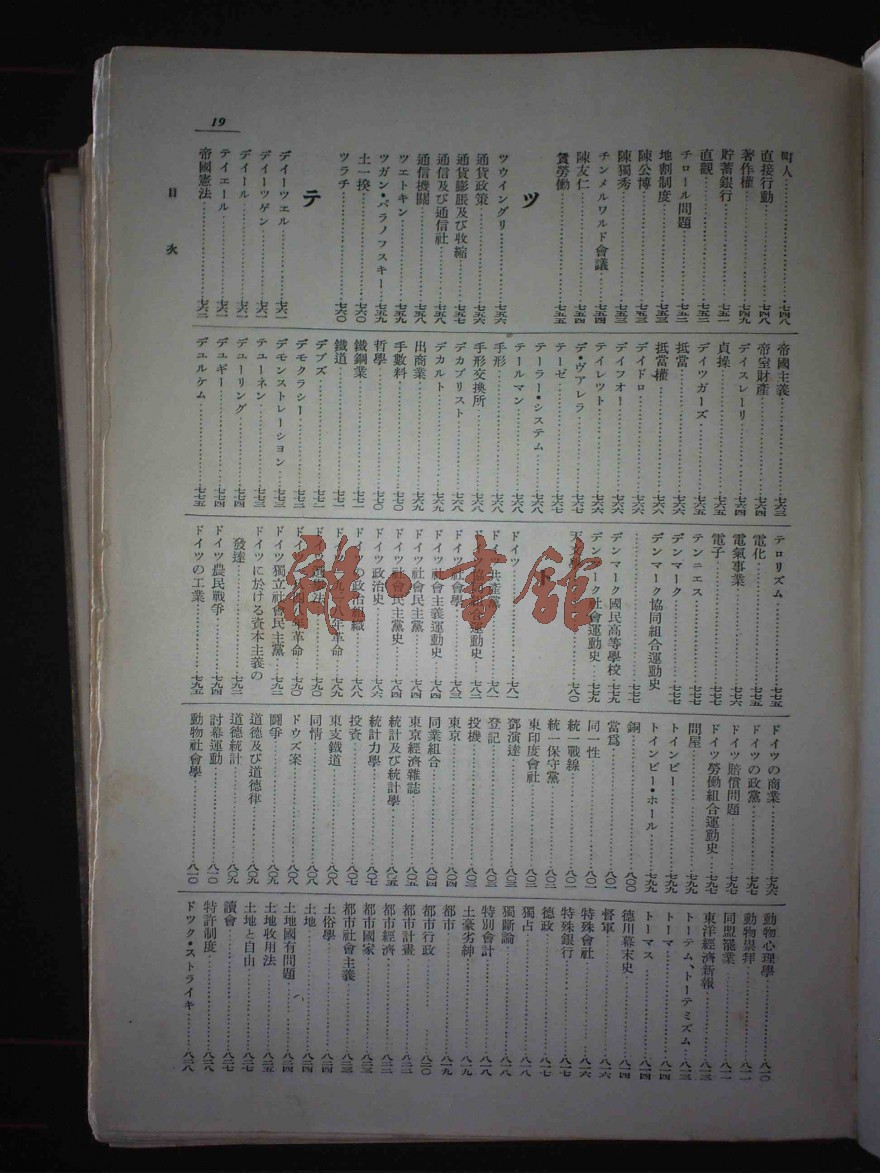 19
町人 七四八
直接行動 七四八
著作權 七四九
貯蓄銀行 七五一
直觀 七五二
チロール問題 七五二
地割制度 七五三
陳公博 七五三
陳獨秀 七五三
チンメルワルド會議 七五四
陳友仁 七五五
賃勞働 七五五
ツ
ツウイングリ 七五六
通貨政策 七五六
通貨膨脹及び收縮 七五七
通信及び通信社 七五八
通信機關 七五八
ツェトキン 七五九
ツガン・バラノフスキー 七五九
土一揆 七六〇
ツラチ 七六〇
テ
デイーツェル 七六一
デイーツゲン 七六一
デイール 七六一
テイエール 七六一
帝國憲法 七六二
目次
帝國主義 七六三
帝室財產 七六四
デイスレーリ 七六四
貞操 七六五
デイツガーズ 七六五
抵當 七六六
抵當權 七六六
デイドロ 七六六
デイフオー 七六六
テイレツト 七六六
デ・ヴアレラ 七六七
テーゼ 七六七
テーラー・システム 七六八
テールマン 七六八
手形 七六八
手形交換所 七六九
デカブリスト 七六八
デカルト 七六九
出商業 七六九
手數料 七七〇
哲學 七七〇
鐵鋼業 七七一
鐵道 七七一
デブズ 七七二
デモクラシー 七七二
デモンストレーション 七七三
テユーネン 七七三
デューリング 七七四
デュギー 七七四
デュルケム 七七五
テロリズム 七七五
電化 七七五
電氣事業 七七六
電子 七七七
テンニエス 七七七
デンマーク 七七七
デンマーク協同組合運動史
七七七
デンマーク國民高等學校 七七九
デンマーク社會運動史 七七九
七八〇
ドイツ 七八一
ドイツ共產黨 七八一
七八二
ドイツ社會學 七八三
ドイツ社會主義運動史 七八四
ドイツ社會民主黨 七八四
ドイツ社會民主黨史 七八四
ドイツ政治史 七八六
ドイツの政治組織 七八八
ドイツ一九一八年革命 七八九
七九〇
七九〇
ドイツ獨立社會民主黨 七九二
ドイツに於ける資本主義の
發達 七九二
ドイツ農民戰爭 七九四
ドイツの工業 七九五
ドイツの商業 七九六
ドイツの政黨 七九九
ドイツ賠償問題 七九九
ドイツ勞働組合運動史 七九九
問屋 七九九
トインビー 七九九
トインビー・ホール 七九九
銅 八〇〇
當爲 八〇一
同一性 八〇一
統一戰線 八〇一
統一保守黨 八〇二
東印度會社 八〇二
鄧演達 八〇三
登記 八〇三
投機 八〇三
東京 八〇四
同業組合 八〇四
東京經濟雜誌 八〇五
統計及び統計學 八〇五
統計力學 八〇七
投資 八〇七
東支鐵道 八〇八
同情 八〇八
ドウズ案 八〇八
鬪爭 八〇九
道德及び道德律 八〇九
道德統計 八〇九
討幕運動 八一〇
動物社會學 八一〇
動物心理學 八一〇
動物崇拜 八一一
同盟罷業 八一一
東洋經濟新報 八一三
トーテム、トーテミズム 八一三
トーマ 八一四
トーマス 八一四
德川幕末史 八一四
督軍 八一六
特殊會社 八一六
特殊銀行 八一七
德政 八一七
獨占 八一八
獨斷論 八一八
特別會計 八一八
土豪劣紳 八一九
都市 八一九
都市行政 八二〇
都市計畫 八二二
都市經濟 八二二
都市國家 八二三
都市社會主義 八二三
土俗學 八二四
土地 八二四
土地國有問題 八二四
土地收用法 八二五
土地と自由 八二七
讀會 八二七
特許制度 八二八
ドツク・ストライキ 八二八
雜·書館